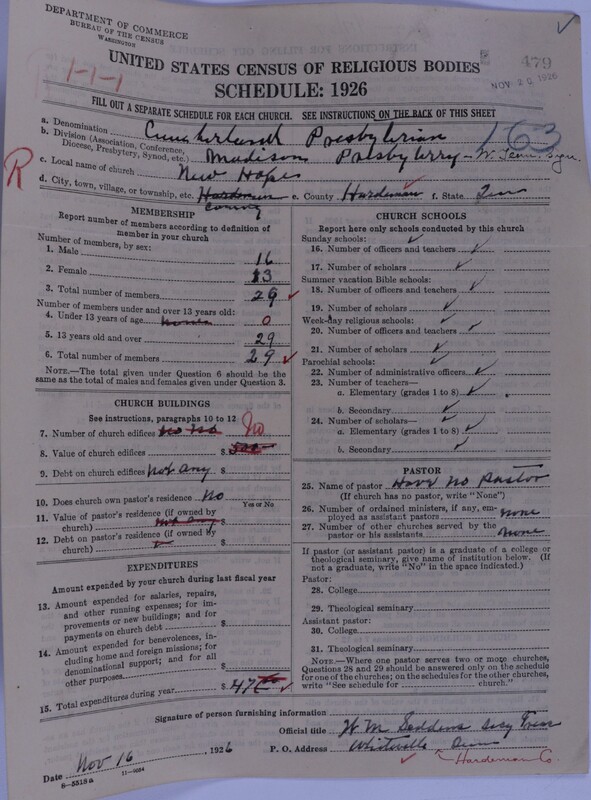 DEPARTMENT OF COMMERCE
BUREAU OF THE CENSUS
WASHINGTON
479
NOV 20 1926
1-1-1
UNITED STATES CENSUS OF RELIGIOUS BODIES
SCHEDULE: 1926
FILL OUT A SEPARATE SCHEDULE FOR EACH CHURCH. SEE INSTRUCTIONS ON THE BACK OF THIS SHEET
163
R
a. Denomination Cumberland Presbyterian
b. Division (Association, Conference, Diocese, Presbytery, Synod, etc.) Madison Presbytery - W. Tenn. Syn.
c. Local name of church New Hope
d. City, town, village, or township, etc. Hardeman County e. County Hardeman f. State Tenn
MEMBERSHIP
Report number of members according to definition of
member in your church
Number of members, by sex:
1. Male 16
2. Female 13
3. Total number of members 29
Number of members under and over 13 years old:
4. Under 13 years of age none 0
5. 13 years old and over 29
6. Total number of members 29
NOTE.—The total given under Question 6 should be the
same as the total of males and females given under Question 3.
CHURCH BUILDINGS
See instructions, paragraphs 10 to 12
7. Number of church edifices No
8. Value of church edifices $
9. Debt on church edifices not any $
10. Does church own pastor's residence No
Yes or No
11. Value of pastor's residence (if owned by
church) not any $
12. Debt on pastor's residence (if owned by
church) $
EXPENDITURES
Amount expended by your church during last fiscal year
13. Amount expended for salaries, repairs,
and other running expenses; for im-
provements or new buildings; and for
payments on church debt $
14. Amount expended for benevolences, in-
cluding home and foreign missions; for
denominational support; and for all
other purposes $
15. Total expenditures during year $ 47
CHURCH SCHOOLS
Report here only schools conducted by this church
Sunday schools:
16. Number of officers and teachers
17. Number of scholars
Summer vacation Bible schools:
18. Number of officers and teachers
19. Number of scholars
Week-day religious schools:
20. Number of officers and teachers
21. Number of scholars
Parochial schools:
22. Number of administrative officers
23. Number of teachers—
a. Elementary (grades 1 to 8)
b. Secondary
24. Number of scholars—
a. Elementary (grades 1 to 8)
b. Secondary
PASTOR
25. Name of pastor Have no Pastor
(If church has no pastor, write "None")
26. Number of ordained ministers, if any, em-
ployed as assistant pastors none
27. Number of other churches served by the
pastor or his assistants none
If pastor (or assistant pastor) is a graduate of a college or
theological seminary, give name of institution below. (If
not a graduate, write "No" in the space indicated.)
Pastor:
28. College
29. Theological seminary
Assistant pastor:
30. College
31. Theological seminary
NOTE.—Where one pastor serves two or more churches,
Questions 28 and 29 should be answered only on the schedule
for one of the churches; on the schedules for the other churches,
write "See schedule for church."
Signature of person furnishing information
Official title W M Seddens Secy Treas
P. O. Address Whiteville Tenn
Hardeman Co.
Date Nov 16, 1926
8-5518a 11-9084